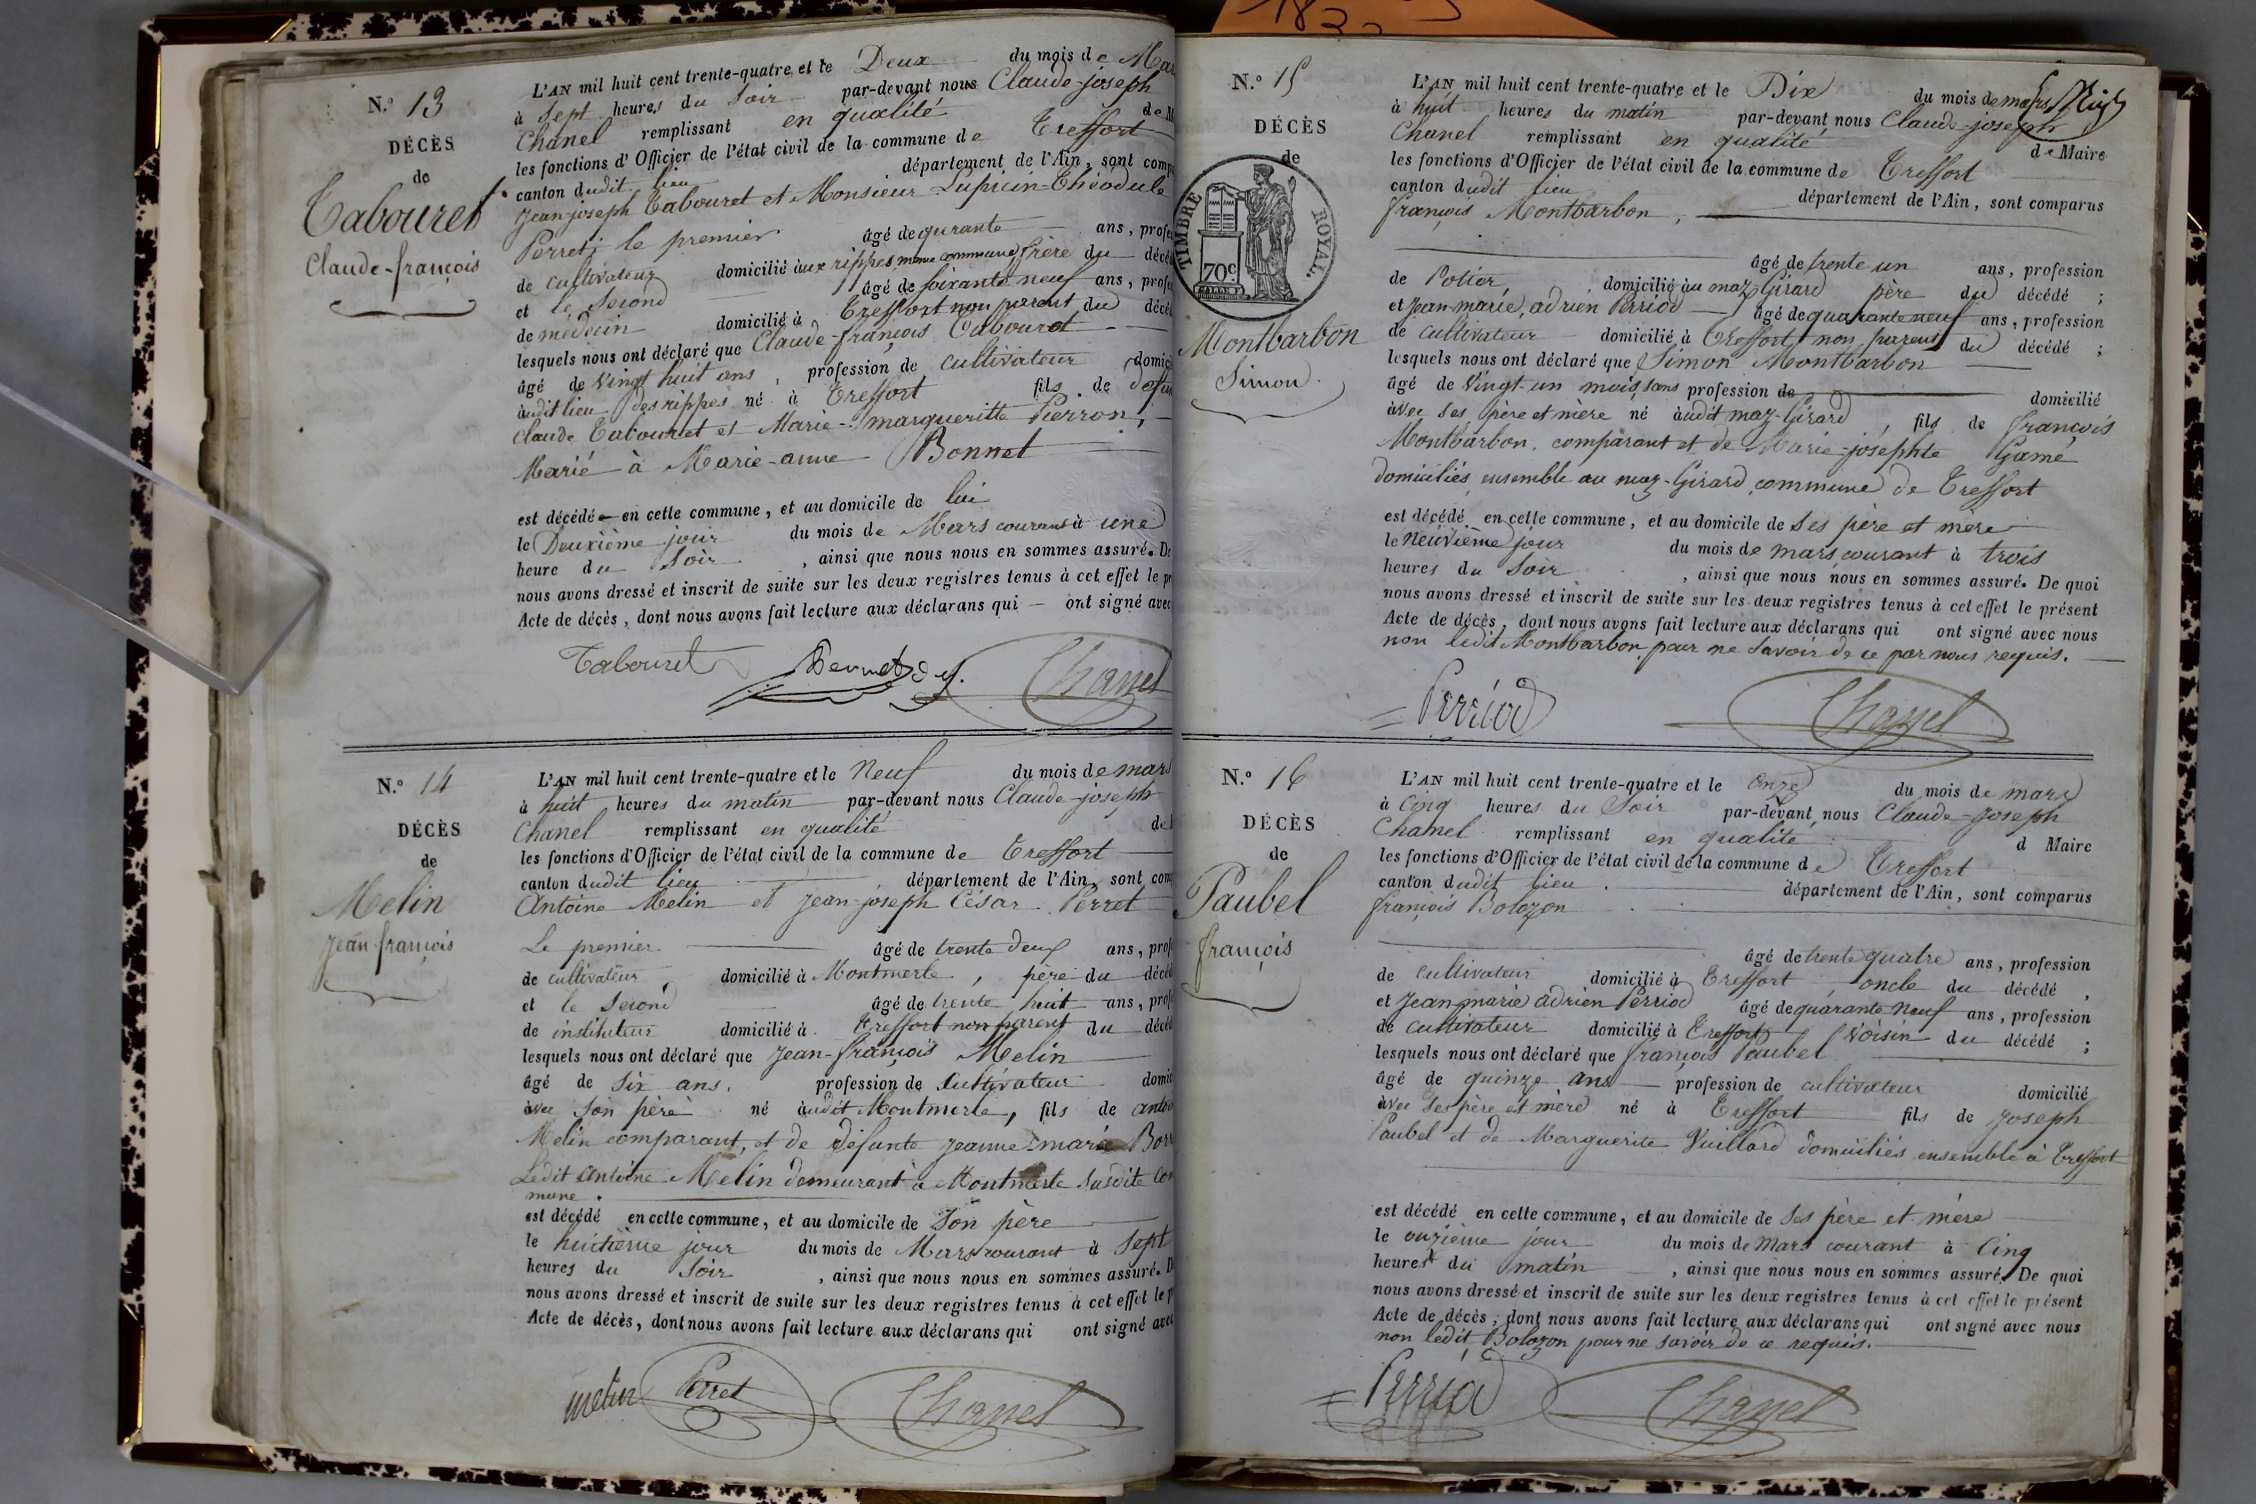 N.º 13
DÉCÈS
de
Tabouret
Claude-françois
L'AN mil huit cent trente-quatre et le Deux du mois de Mar
à sept heures du soir par-devant nous Claude-joseph
Chanel remplissant en qualité de M
les fonctions d'Officier de l'état civil de la commune de Treffort
canton dudit lieu département de l'Ain, sont comp
Jean joseph Tabouret et Monsieur Lupicin-Théodule
Perret; le premier âgé de qurante ans, profe
de cultivateur domicilié aux rippes même commune frère du décé
et le second âgé de soixante neuf ans, profe
de médecin domicilié à Treffort non parent du décé
lesquels nous ont déclaré que Claude-françois Tabouret
âgé de vingt huit ans, profession de cultivateur domici
audit lieu des rippes né à Treffort fils de defun
Claude Tabouret et Marie-margueritte Pierron,
Marié à Marie-anne Bonnet
est décédé en cette commune, et au domicile de lui
le Deuxième jour du mois de Mars courant à une
heure du Soir, ainsi que nous nous en sommes assuré. De
nous avons dressé et inscrit de suite sur les deux registres tenus à cet effet le pr
Acte de décès, dont nous avons fait lecture aux déclarans qui ont signé avec
Tabouret Chanel
N.º 14
DÉCÈS
de
Melin
Jean françois
L'AN mil huit cent trente-quatre et le Neuf du mois de mars
à huit heures du matin par-devant nous Claude-joseph
Chanel remplissant en qualité de
les fonctions d'Officier de l'état civil de la commune de Treffort
canton dudit lieu département de l'Ain, sont com
Antoine Melin et Jean-joseph César Perret
Le premier âgé de trente deux ans, profe
de cultivateur domicilié à Montmerle, père du décéd
et le second âgé de trente huit ans, profe
de instituteur domicilié à Treffort non parent du décéd
lesquels nous ont déclaré que Jean-françois Melin
âgé de six ans. profession de Cultivateur domic
avec son père né audit Montmerle, fils de anto
Melin comparant, et de défunte Jeanne-marie Borr
Ledit Antoine Melin demeurant à Montmerle susdite com
mune.
est décédé en cette commune, et au domicile de son père
le huitième jour du mois de Mars courant à sept
heures du soir, ainsi que nous nous en sommes assuré. D
nous avons dressé et inscrit de suite sur les deux registres tenus à cet effet le p
Acte de décès, dont nous avons fait lecture aux déclarans qui ont signé avec
melin Perret Chanel
N.º 15
DÉCÈS
de
TIMBRE ROYAL.
70c.
Montbarbon
Simon.
L'AN mil huit cent trente-quatre et le Dix du mois de mars
à huit heures du matin par-devant nous Claude-joseph
Chanel remplissant en qualité de Maire
les fonctions d'Officier de l'état civil de la commune de Treffort
canton dudit lieu département de l'Ain, sont comparus
françois Montbarbon,
âgé de trente un ans, profession
de Potier, domicilié au maz Girard père du décédé;
et Jean-marie, adrien Perriod âgé de quarante neuf ans, profession
de cultivateur domicilié à Treffort non parent du décédé;
lesquels nous ont déclaré que Simon Montbarbon
âgé de vingt un mois, sans profession de domicilié
avec ses père et mère né audit maz-Girard, fils de françois
Montbarbon comparant et de Marie-josephte Gamé
domiciliés ensemble au maz-Girard, commune de Treffort
est décédé en cette commune, et au domicile de ses père et mère
le neuvième jour du mois de mars courant à trois
heures du soir, ainsi que nous nous en sommes assuré. De quoi
nous avons dressé et inscrit de suite sur les deux registres tenus à cet effet le présent
Acte de décès, dont nous avons fait lecture aux déclarans qui ont signé avec nous
non ledit Montbarbon pour ne savoir de ce par nous requis.
Perriod Chanel
N.º 16
DÉCÈS
de
Paubel
françois
L'AN mil huit cent trente-quatre et le onze du mois de mars
à cinq heures du Soir par-devant nous Claude-Joseph
Chanel remplissant en qualité d Maire
les fonctions d'Officier de l'état civil de la commune de Treffort
canton dudit lieu. département de l'Ain, sont comparus
françois Bolozon
âgé de trente quatre ans, profession
de cultivateur domicilié à Treffort, oncle du décédé,
et Jean marie adrien Perriod âgé de quarante neuf ans, profession
de cultivateur domicilié à Treffort voisin du décédé;
lesquels nous ont déclaré que françois Paubel
âgé de quinze ans profession de cultivateur domicilié
avec ses père et mère né à Treffort fils de Joseph
Paubel et de Marguerite Vuillard domiciliés ensemble à Treffort
est décédé en cette commune, et au domicile de ses père et mère
le onzième jour du mois de Mars courant à Cinq
heures du matin, ainsi que nous nous en sommes assuré. De quoi
nous avons dressé et inscrit de suite sur les deux registres tenus à cet effet le présent
Acte de décès; dont nous avons fait lecture aux déclarans qui ont signé avec nous
non ledit Bolozon pour ne savoir de ce requis.
Perriod Chanel